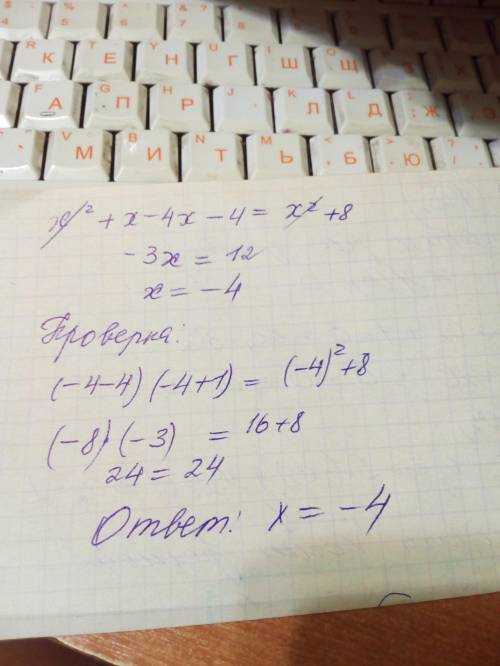 5 6 7 8
R T Y U I O
К Е Н Г Ш Щ
F G H J K L
А П Р Л Д Ж
V B N M
М И Т Ь Б Ю
x² + x - 4x - 4 = x² + 8
-3x = 12
x = -4
Проверка:
(-4-4) (-4+1) = (-4)² + 8
(-8) (-3) = 16+8
24 = 24
Ответ: x = -4